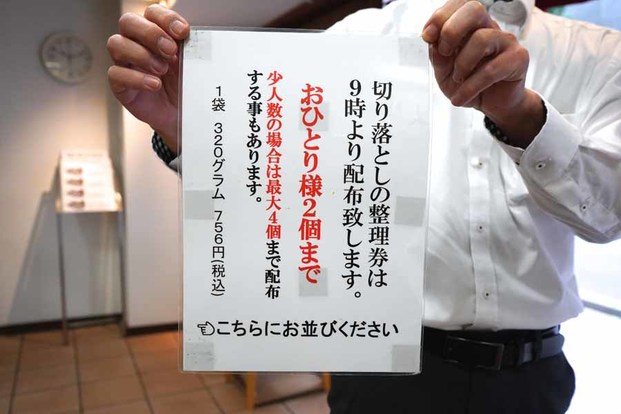 切り落としの整理券は
9時より配布致します。
おひとり様2個まで
少人数の場合は最大4個まで配布
する事もあります。
1袋 320グラム 756円(税込)
☜こちらにお並びください